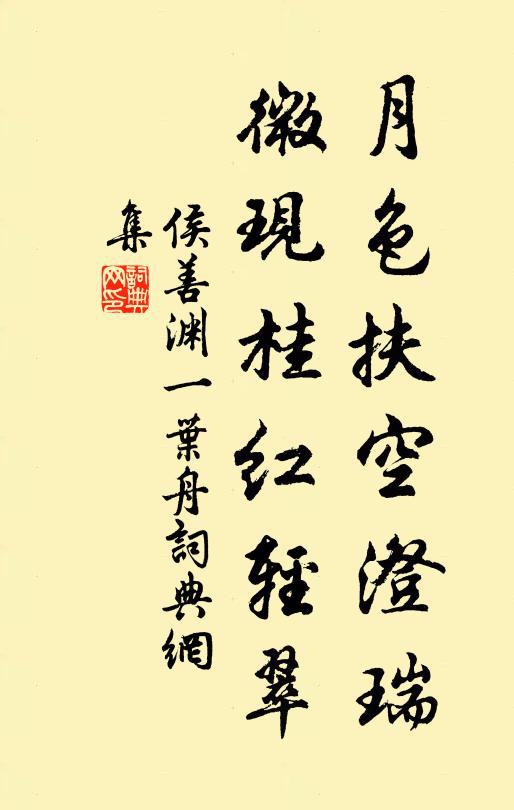 月色扶空澄瑞
微現桂红輕翠
侯善渊一葉舟詞典網
集
詞典网印